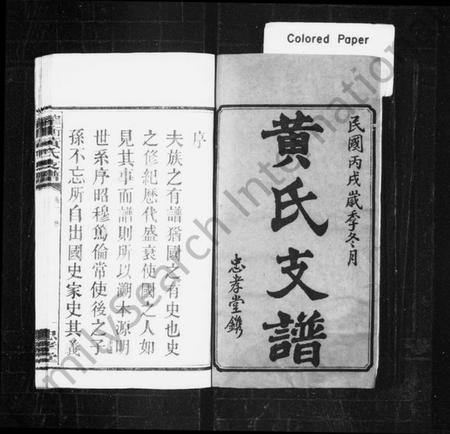 Colored Paper
民國丙戌歲季冬月
黃氏支譜
忠孝堂鐫
序
夫族之有譜猶國之有史也史
之修紀歷代盛衰使國之人如
見其事而譜則所以溯本源明
世系序昭穆篤倫常使後之子
孫不忘所自出國史家史其義
黃氏支譜